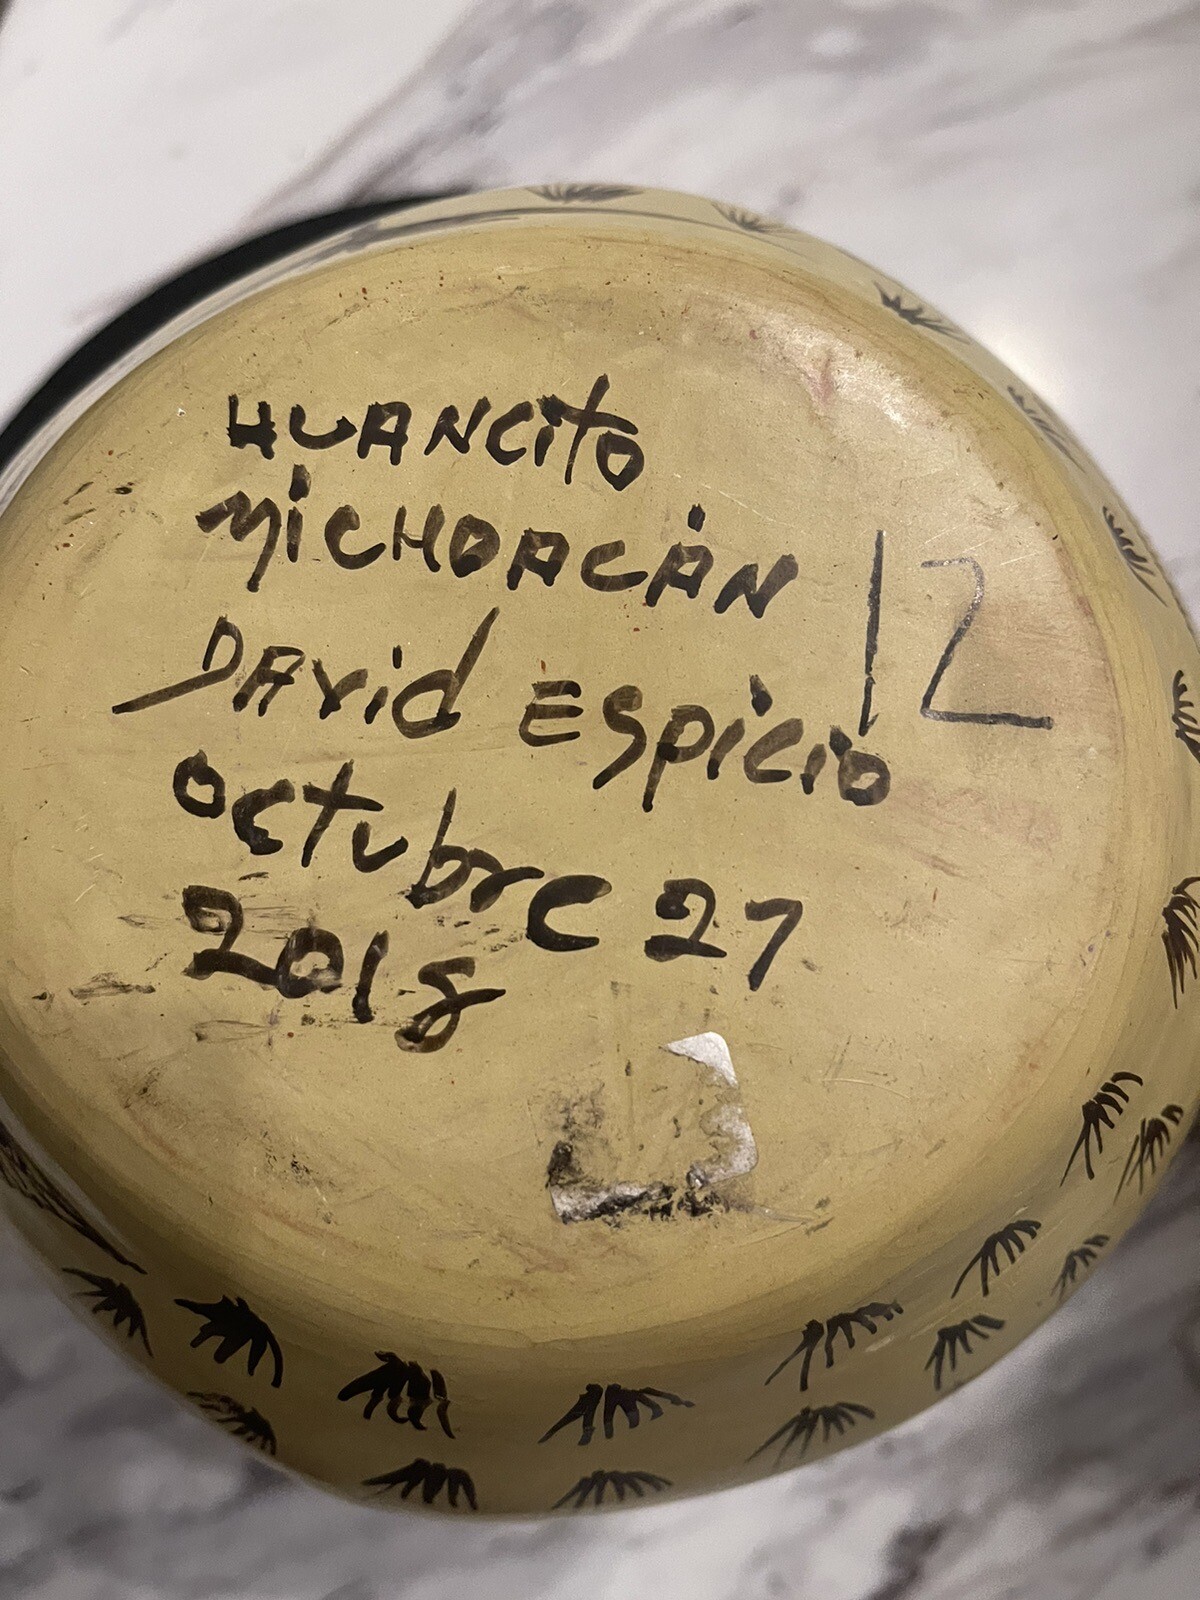 HUANCito
MiCHOACÁN
DAViD ESpiCio
12
octubre 27
2018